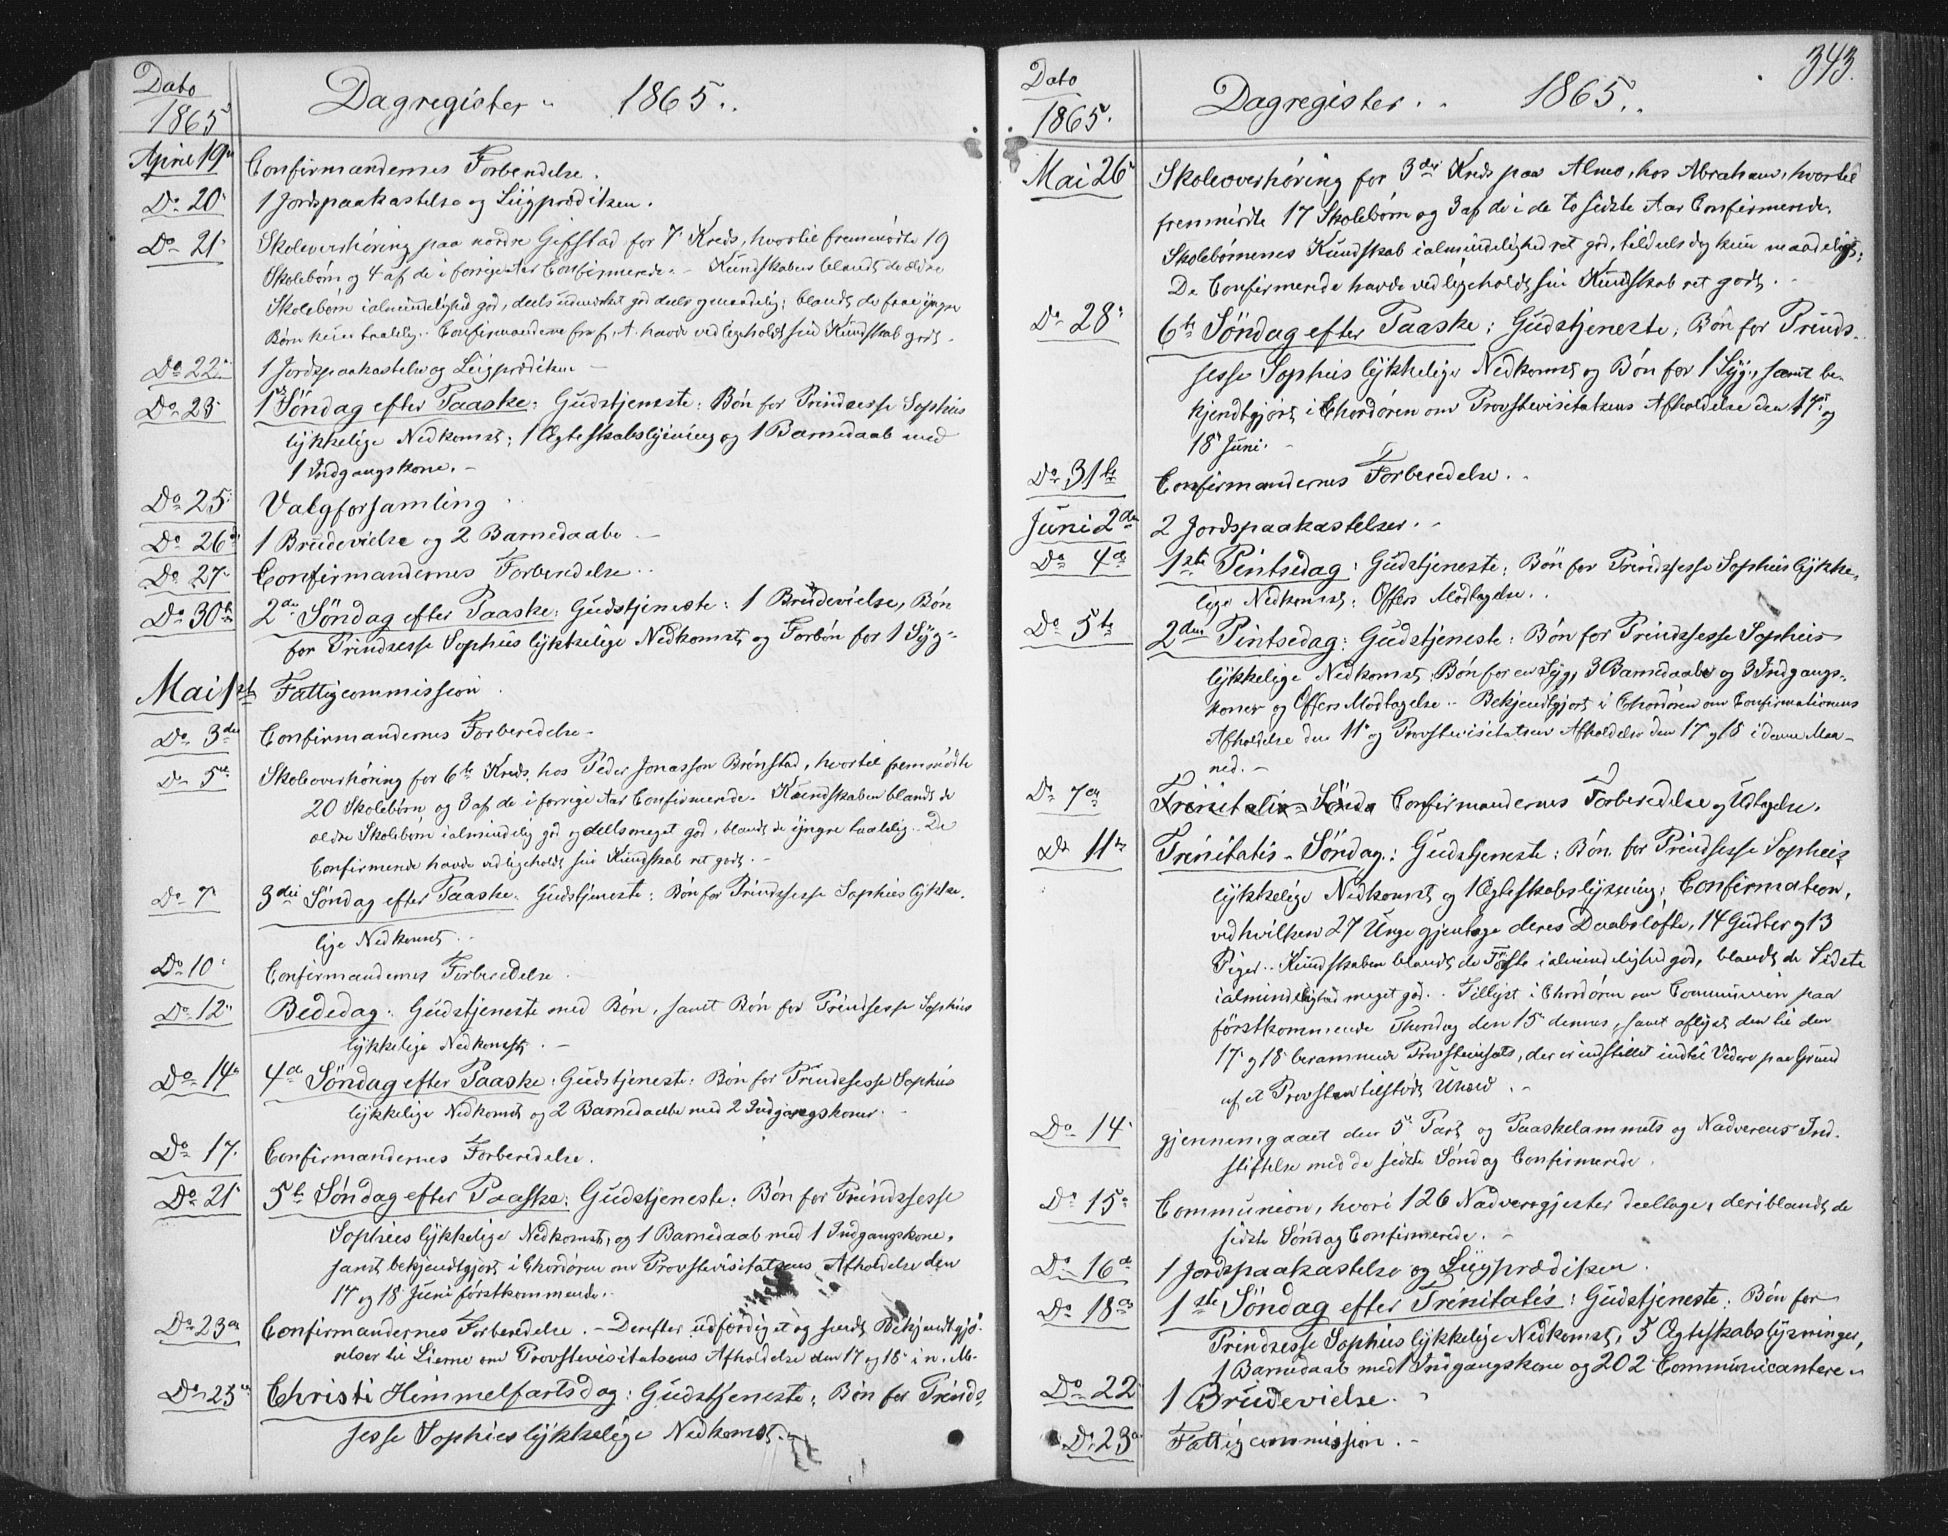 Dato
1865
Dagregister 1865.
April 19de
Confirmandernes Forberedelse.
Do 20.
1 Jordspaakastelse og Liigprædiken.
Do 21.
Skoleoverhøring paa nordre Gifstad for 7. Kreds, hvortil fremmødte 19
Skolebørn og 4 af de i forrige Aar Confirmerede. - Kundskaben blandt de ældre
Skolebørn i almindelighed god, deels udmærket god deels og maadelig; blandt de faae yngre
Børn kun taalelig. Confirmanderne fra f. A. havde vedligeholdt sin Kundskab godt.
Do 22.
1 Jordspaakastelse og Liigprædiken -
Do 23.
1ste Søndag efter Paaske: Gudstjeneste: Bøn for Prindsesse Sophies
lykkelige Nedkomst; 1 Ægteskabslysning og 1 Barnedaab med
1 Indgangskone. -
Do 25.
Valgforsamling
Do 26de
1 Brudevielse og 2 Barnedaabe
Do 27.
Confirmandernes Forberedelse
Do 30te
2den Søndag efter Paaske: Gudstjeneste: 1 Brudevielse, Bøn
for Prindsesse Sophies lykkelige Nedkomst og Forbøn for 1 Syg -
Mai 1ste
Fattigcommission
Do 3die
Confirmandernes Forberedelse -
Do 5te
Skoleoverhøring for 6te Kreds, hos Peder Jonasson Brønstad, hvortil fremmødte
20 Skolebørn og 3 af de i forrige Aar Confirmerede. Kundskaben blandt de
ældre Skolebørn i almindelig god og deels meget god, blandt de yngre taalelig. De
Confirmerede havde vedligeholdt sin Kundskab ret godt. -
Do 7.
3die Søndag efter Paaske. Gudstjeneste: Bøn for Prindsesse Sophies lykke-
lige Nedkomst.
Do 10.
Confirmandernes Forberedelse.
Do 12.
Bededag: Gudstjeneste med Bøn, samt Bøn for Prindsesse Sophies
lykkelige Nedkomst. -
Do 14.
4de Søndag efter Paaske: Gudstjeneste: Bøn for Prindsesse Sophies
lykkelige Nedkomst og 2 Barnedaabe med 2 Indgangskoner.
Do 17.
Confirmandernes Forberedelse.
Do 21.
5te Søndag efter Paaske: Gudstjeneste: Bøn for Prindsesse
Sophies lykkelige Nedkomst, og 1 Barnedaab med 1 Indgangskone,
samt bekjendtgjort i Chordøren om Provstevisitatsens Afholdelse den
17 og 18 Juni førstkommende.
Do 23de
Confirmandernes Forberedelse. - Derefter udfærdiget og sendt Bekjendtgjø-
relser til Lierne om Provstevisitatsens Afholdelse den 17 og 18. i n. M.
Do 25
Christi Himmelfartsdag: Gudstjeneste: Bøn for Prinds-
sesse Sophies lykkelige Nedkomst. -
343.
Dato
1865.
Dagregister. 1865.
Mai 26.
Skoleoverhøring for 3die Kreds paa Almo, hos Abraham, hvortil
fremmødte 17 Skolebørn og 3 af de i de to sidste Aar Confirmerede.
Skolebørnenes Kundskab i almindelighed ret god, tildels dog kun maadelig;
De Confirmerede havde vedligeholdt sin Kundskab ret godt.
Do 28.
6te Søndag efter Paaske: Gudstjeneste; Bøn for Prinds-
sesse Sophies lykkelige Nedkomst og Bøn for 1 Syg, samt be-
kjendtgjort i Chordøren om Provstevisitatsens Afholdelse den 17. og
18. Juni. -
Do 31te
Confirmandernes Forberedelse.
Juni 2den
2 Jordspaakastelser. -
Do 4de
1ste Pintsedag: Gudstjeneste: Bøn for Prindsesse Sophies lykke-
lige Nedkomst: Offers Modtagelse.
Do 5te
2den Pintsedag: Gudstjeneste: Bøn for Prindsesse Sophies
lykkelige Nedkomst: Bøn for en Syg, 3 Barnedaabe og 3 Indgangs-
koner og Offers Modtagelse. - Bekjendtgjort i Chordøren om Confirmationens
Afholdelse den 11. og Provstevisitatsens Afholdelse den 17 og 18 i denne Maa-
ned. -
Do 7de
Trinitatis Sønda Confirmandernes Forberedelse og Udtagelse.
Do 11te
Trinitatis - Søndag: Gudstjeneste: Bøn for Prindsesse Sophies
lykkelige Nedkomst og 1 Ægteskabslysning; Confirmation,
ved hvilken 27 Unge gjentoge deres Daabsløfte, 14 Gutter og 13
Piger. - Kundskaben blandt de Første i almindelighed god, blandt de Sidste
i almindelighed meget god. Tillyst i Chordøren om Communion paa
førstkommende Thorsdag den 15. dennes, samt aflyst den til den
17. og 18. berammede Provstevisitats, der er indstillet indtil Videre paa Grund
af et Provsten tilstødt Uheld. -
Do 14.
gjennemgaaet den 5. Part og Paaskelammets og Nadverens Ind-
stiftelse med de sidste Søndag Confirmerede.
Do 15.
Communion, hvori 126 Nadvergjester deeltoge, deriblandt de
sidste Søndag Confirmerede. -
Do 16de
1 Jordspaakastelse og Liigprædiken.
Do 18de
1ste Søndag efter Trinitatis: Gudstjeneste: Bøn for
Prindsesse Sophies lykkelige Nedkomst, 5 Ægteskabslysninger,
1 Barnedaab med 1 Indgangskone og 202 Communicantere
Do 22
1 Brudevielse.
Do 23.
Fattigcommission. -